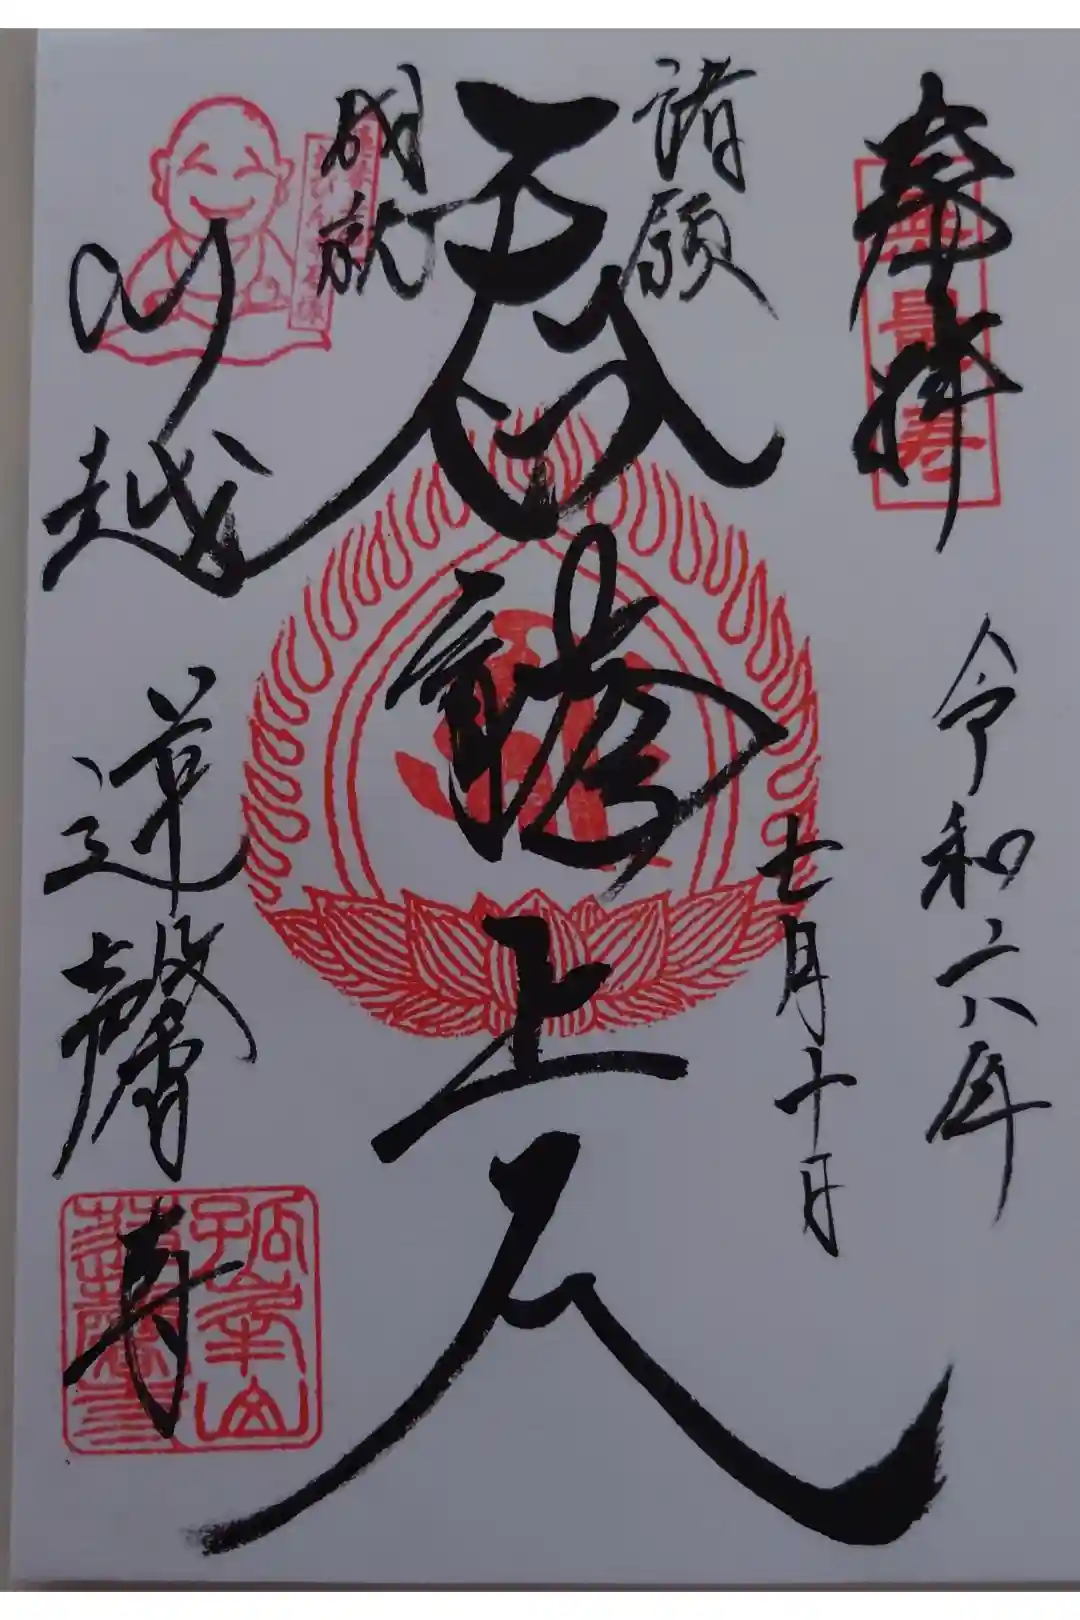 奉拝
無量寿
令和六年
七月十日
諸願
成就
呑龍上人
川越
蓮馨寺
孤峯山